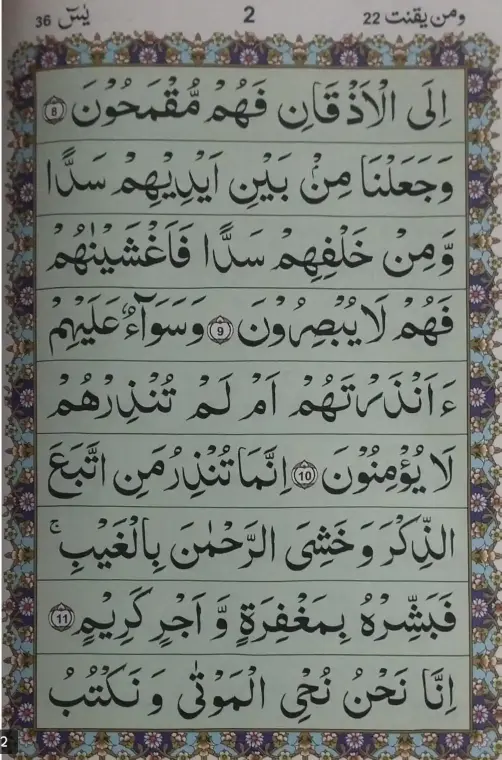 ومن يقنت 22 2 يٰسٓ 36
اِلَى الْاَذْقَانِ فَهُمْ مُّقْمَحُوْنَ ﴿8﴾
وَجَعَلْنَا مِنْۢ بَيْنِ اَيْدِيْهِمْ سَدًّا
وَّمِنْ خَلْفِهِمْ سَدًّا فَاَغْشَيْنٰهُمْ
فَهُمْ لَا يُبْصِرُوْنَ ﴿9﴾ وَسَوَآءٌ عَلَيْهِمْ
ءَاَنْذَرْتَهُمْ اَمْ لَمْ تُنْذِرْهُمْ
لَا يُؤْمِنُوْنَ ﴿10﴾ اِنَّمَا تُنْذِرُ مَنِ اتَّبَعَ
الذِّكْرَ وَخَشِىَ الرَّحْمٰنَ بِالْغَيْبِ ۚ
فَبَشِّرْهُ بِمَغْفِرَةٍ وَّ اَجْرٍ كَرِيْمٍ ﴿11﴾
اِنَّا نَحْنُ نُحْىِ الْمَوْتٰى وَ نَكْتُبُ
2